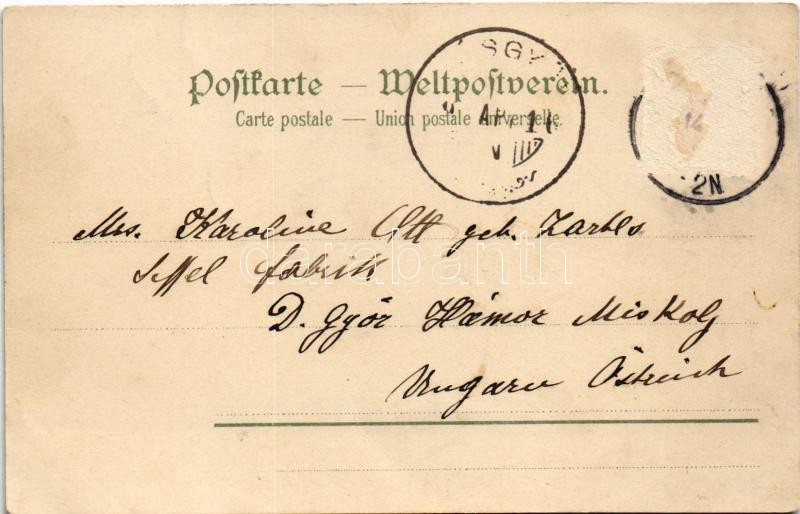 Postkarte — Weltpostverein.
Carte postale — Union postale universelle.
SGY
AP 1
V
2N
Mrs. Karoline Ott geb. Zarbls
fabrik
D. Győr Hámor Miskolz
Ungarn Östreich
darabanth